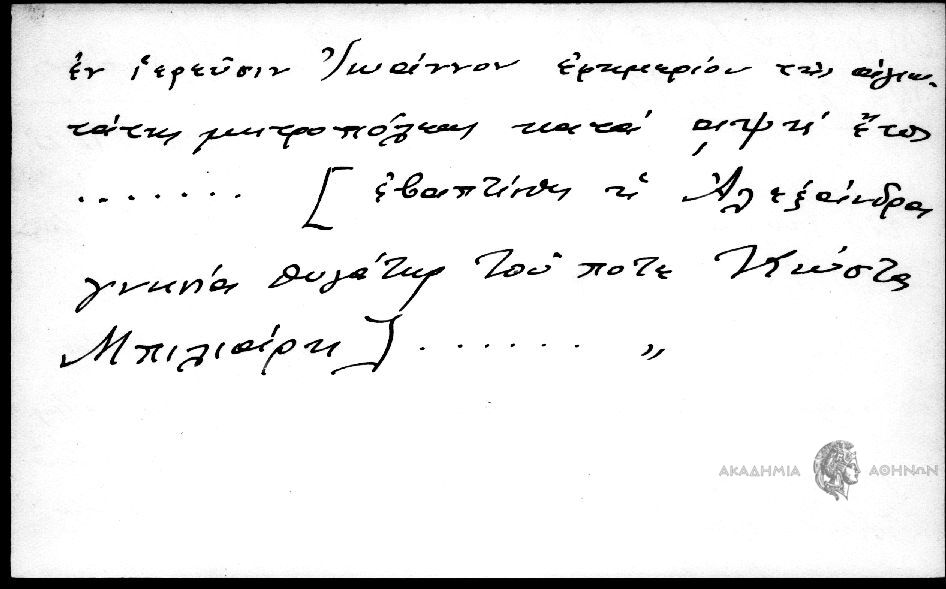 ἐν ἱερεῦσιν Ἰωάννου ἐφημερίου τῆς ἁγιω-
τάτης μητροπόλεως κατὰ ͵αιψκ´ ἔτος
....... [ἐβαπτίσθη ἡ Ἀλεξάνδρα
γνησία θυγάτηρ τοῦ ποτε Κώστα
Μπιλιάρη] ....... „
ΑΚΑΔΗΜΙΑ ΑΘΗΝΩΝ